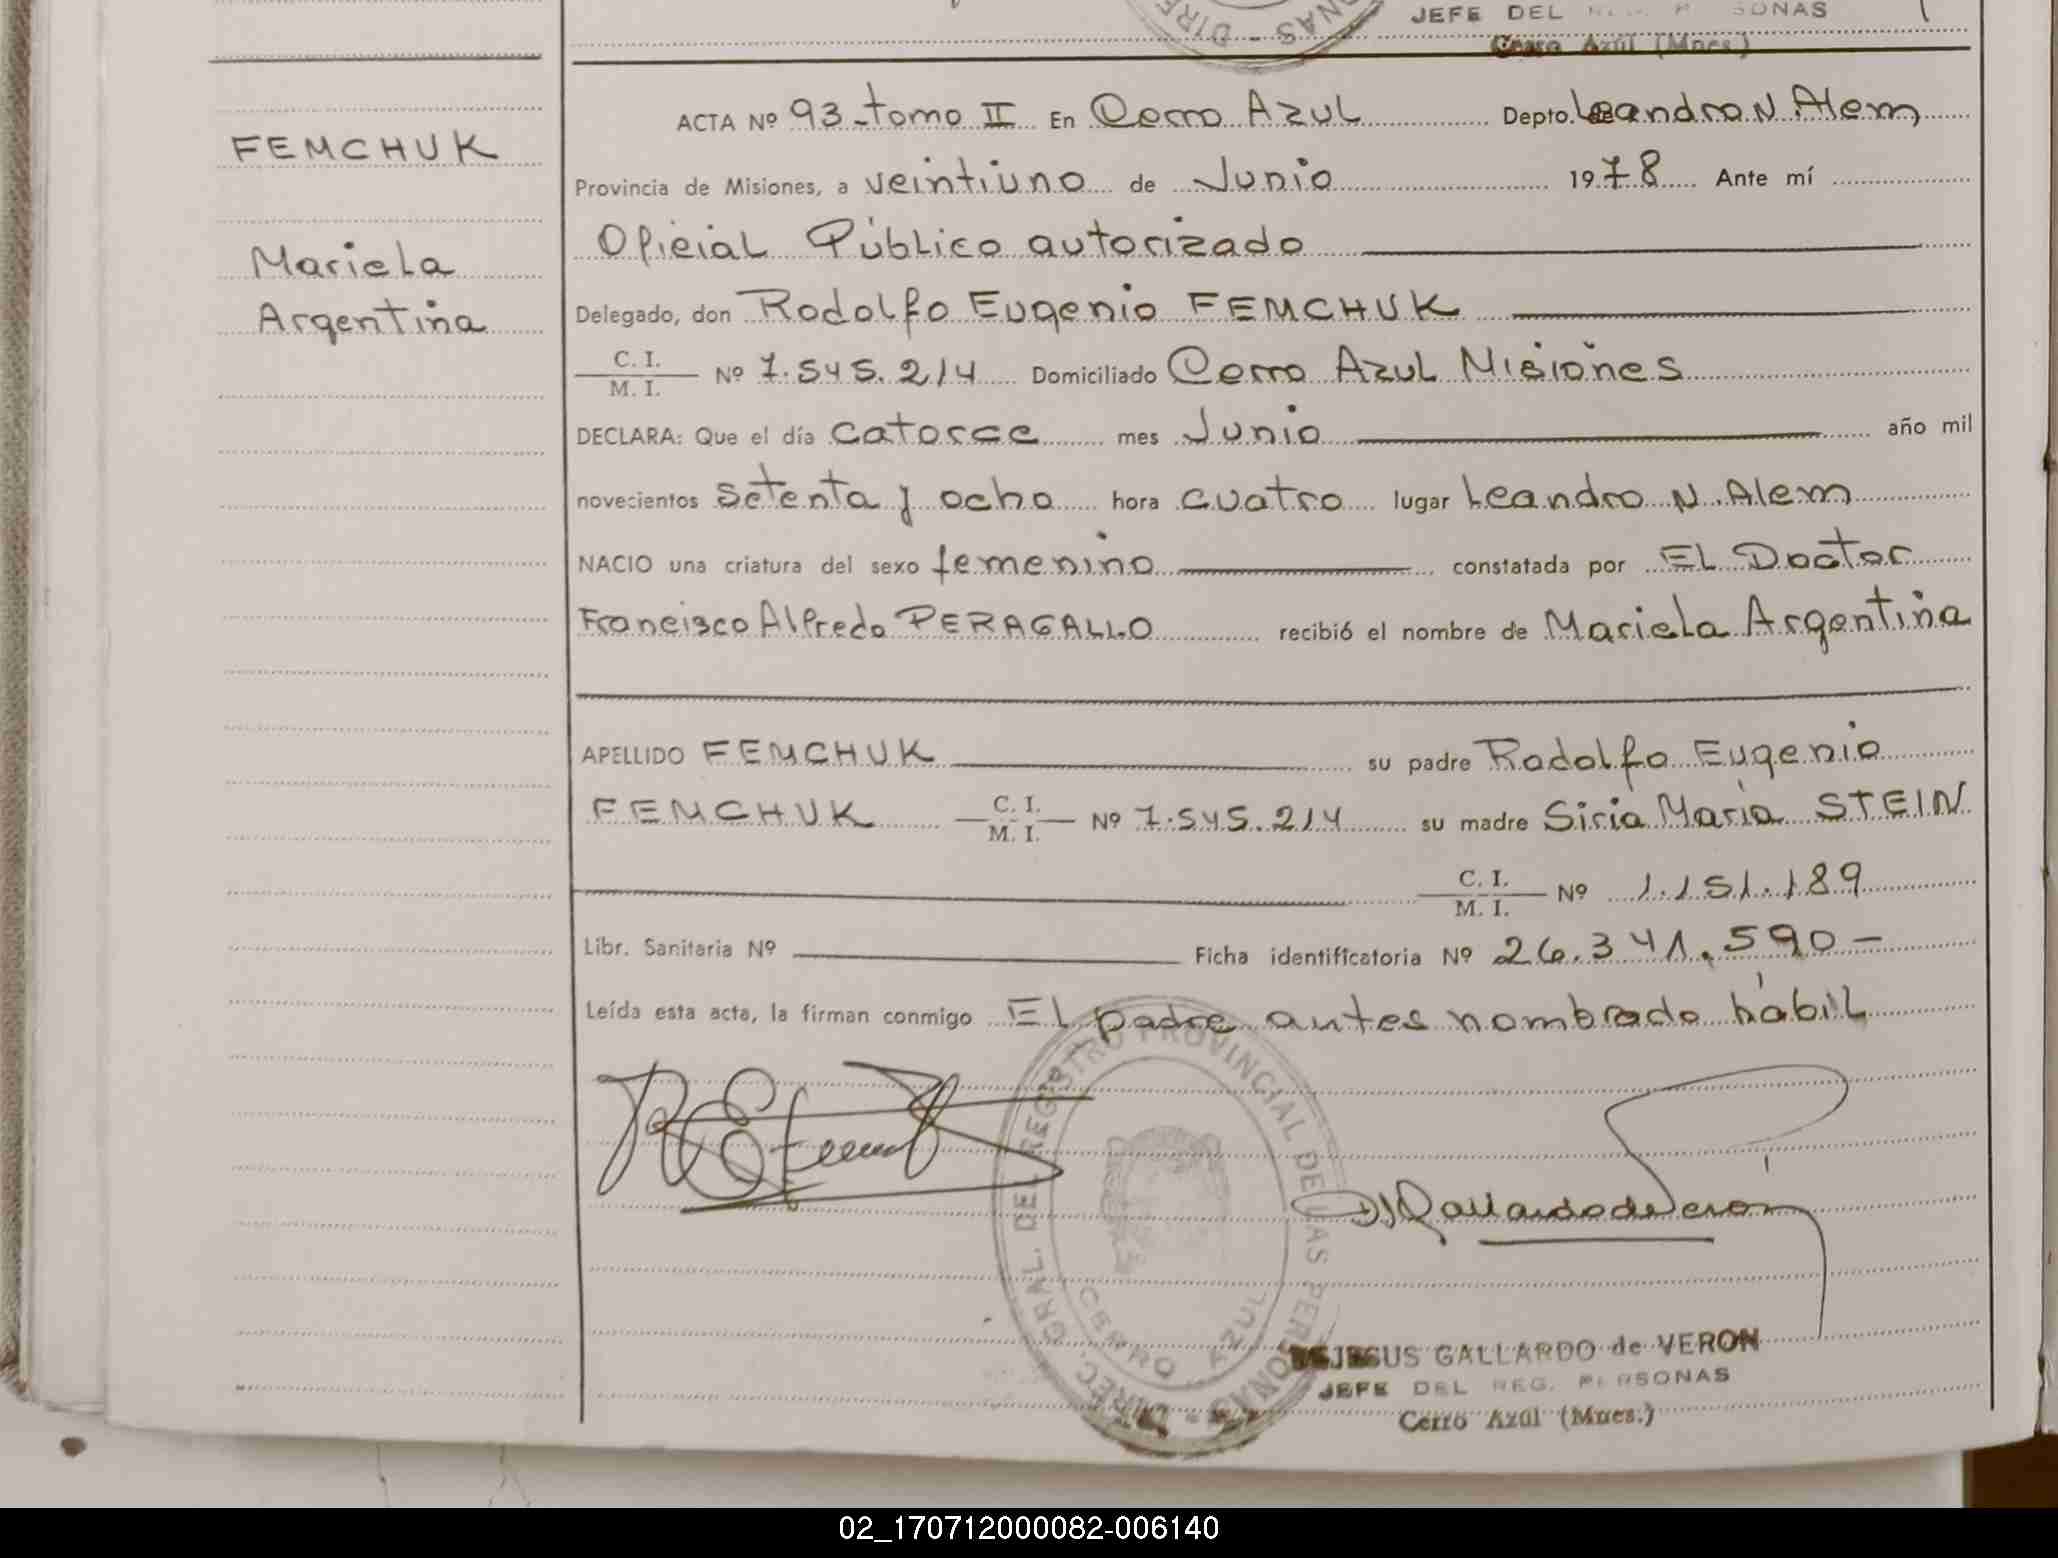 JEFE DEL REG. PERSONAS
Cerro Azúl (Mnes.)
FEMCHUK
Mariela
Argentina
ACTA Nº 93 - tomo II En Cerro Azul Depto. Leandro N. Alem
Provincia de Misiones, a veintiuno de Junio 1978 Ante mí
Oficial Público autorizado
Delegado, don Rodolfo Eugenio FEMCHUK
C. I. / M. I. Nº 7.545.214 Domiciliado Cerro Azul Misiones
DECLARA: Que el día catorce mes Junio año mil
novecientos setenta y ocho hora cuatro lugar Leandro N. Alem
NACIO una criatura del sexo femenino constatada por El Doctor
Francisco Alfredo PERAGALLO recibió el nombre de Mariela Argentina
APELLIDO FEMCHUK su padre Rodolfo Eugenio
FEMCHUK C. I. / M. I. Nº 7.545.214 su madre Siria María STEIN
C. I. / M. I. Nº 1.151.189
Libr. Sanitaria Nº Ficha identificatoria Nº 26.341.590 -
Leída esta acta, la firman conmigo El padre antes nombrado hábil
DIREC. GRAL. DEL REGISTRO PROVINCIAL DE LAS PERSONAS -
CERRO AZUL
DJGallardo de Verón
JESUS GALLARDO de VERON
JEFE DEL REG. PERSONAS
Cerro Azúl (Mnes.)
02_170712000082-006140